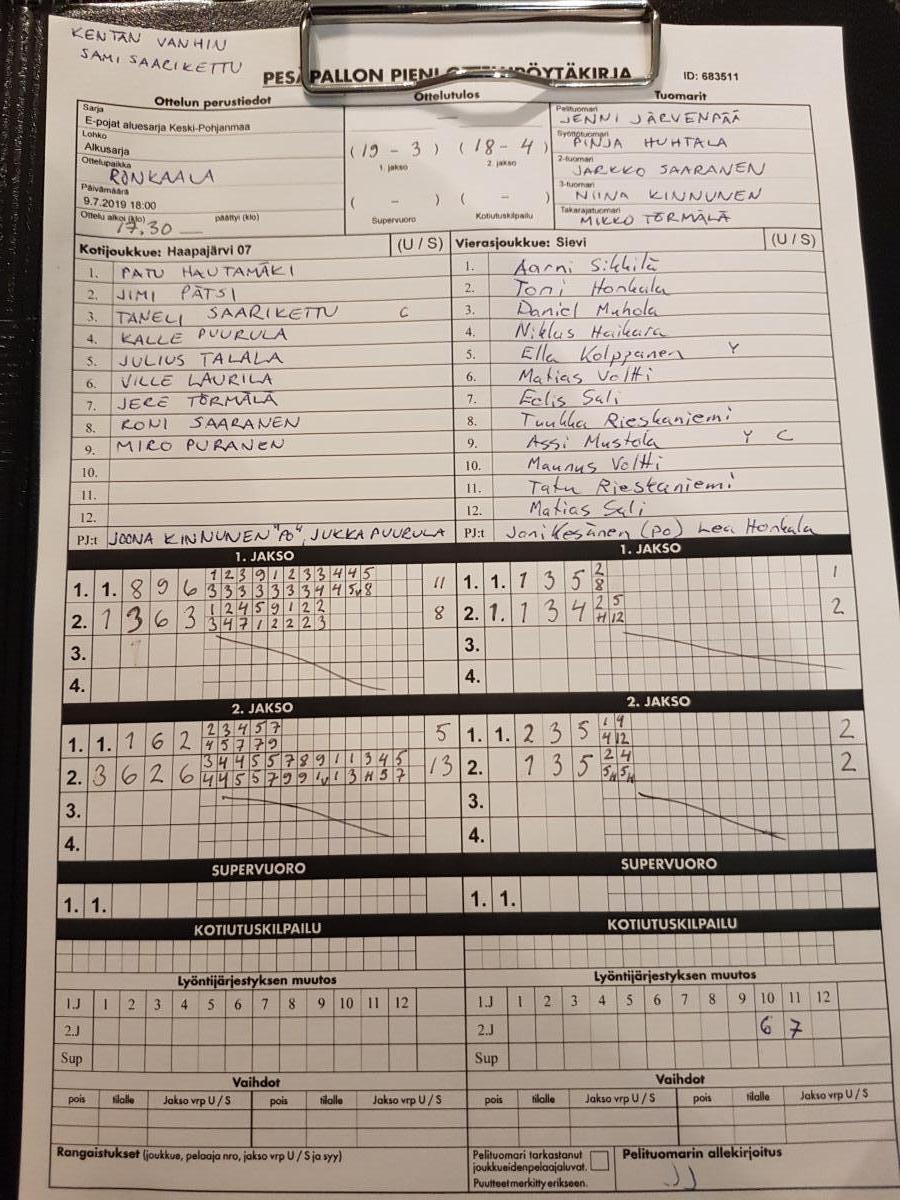 KENTÄN VANHIN
SAMI SAARIKETTU
PESÄPALLON PIENI PÖYTÄKIRJA
ID: 683511
Ottelun perustiedot
Sarja
E-pojat aluesarja Keski-Pohjanmaa
Lohko
Alkusarja
Ottelupaikka
RONKAALA
Päivämäärä
9.7.2019 18:00
Ottelu alkoi (klo) päättyi (klo)
17.30
Ottelutulos
(19 - 3) (18 - 4)
1. jakso 2. jakso
( - ) ( - )
Supervuoro Kotiutuskilpailu
Tuomarit
Pelituomari
JENNI JÄRVENPÄÄ
Syöttötuomari
PINJA HUHTALA
2-tuomari
JARKKO SAARANEN
3-tuomari
NIINA KINNUNEN
Takarajatuomari
MIKKO TÖRMÄLÄ
Kotijoukkue: Haapajärvi 07 (U / S)
1. PATU HAUTAMÄKI
2. JIMI PÄTSI
3. TANELI SAARIKETTU C
4. KALLE PUURULA
5. JULIUS TALALA
6. VILLE LAURILA
7. JERE TÖRMÄLÄ
8. RONI SAARANEN
9. MIRO PURANEN
10.
11.
12.
PJ:t JOONA KINNUNEN "PO", JUKKA PUURULA
Vierasjoukkue: Sievi (U / S)
1. Aarni Sikkilä
2. Toni Honkala
3. Daniel Muhola
4. Niklas Haikara
5. Ella Kolppanen Y
6. Matias Voltti
7. Eelis Sali
8. Tuukka Rieskaniemi
9. Assi Mustola Y C
10. Maunus Voltti
11. Tatu Rieskaniemi
12. Matias Sali
PJ:t Joni Kesänen (PO) Lea Honkala
1. JAKSO
1 2 3 9 1 2 3 3 4 4 5
1. 1. 8 9 6 3 3 3 3 3 3 3 4 4 5v8 11
1 2 4 5 9 1 2 2
2. 1 3 6 3 3 4 7 1 2 2 2 3 8
3.
4.
1. JAKSO
2
1. 1. 1 3 5 8 1
2 5
2. 1. 1 3 4 H 12 2
3.
4.
2. JAKSO
2 3 4 5 7
1. 1. 1 6 2 4 5 7 7 9 5
3 4 4 5 5 7 8 9 1 1 3 4 5
2. 3 6 2 6 4 4 5 5 7 9 9 1v 1 3 H 5 7 13
3.
4.
2. JAKSO
1 4
1. 1. 2 3 5 4 12 2
2 4
2. 1 3 5 5H 5H 2
3.
4.
SUPERVUORO
1. 1.
SUPERVUORO
1. 1.
KOTIUTUSKILPAILU
KOTIUTUSKILPAILU
Lyöntijärjestyksen muutos
1.J 1 2 3 4 5 6 7 8 9 10 11 12
2.J
Sup
Lyöntijärjestyksen muutos
1.J 1 2 3 4 5 6 7 8 9 10 11 12
2.J 6 7
Sup
Vaihdot
pois tilalle Jakso vrp U / S pois tilalle Jakso vrp U / S
Vaihdot
pois tilalle Jakso vrp U / S pois tilalle Jakso vrp U / S
Rangaistukset (joukkue, pelaaja nro, jakso vrp U / S ja syy)
Pelituomari tarkastanut
joukkueidenpelaajaluvat.
Puutteet merkitty erikseen.
Pelituomarin allekirjoitus
JJ